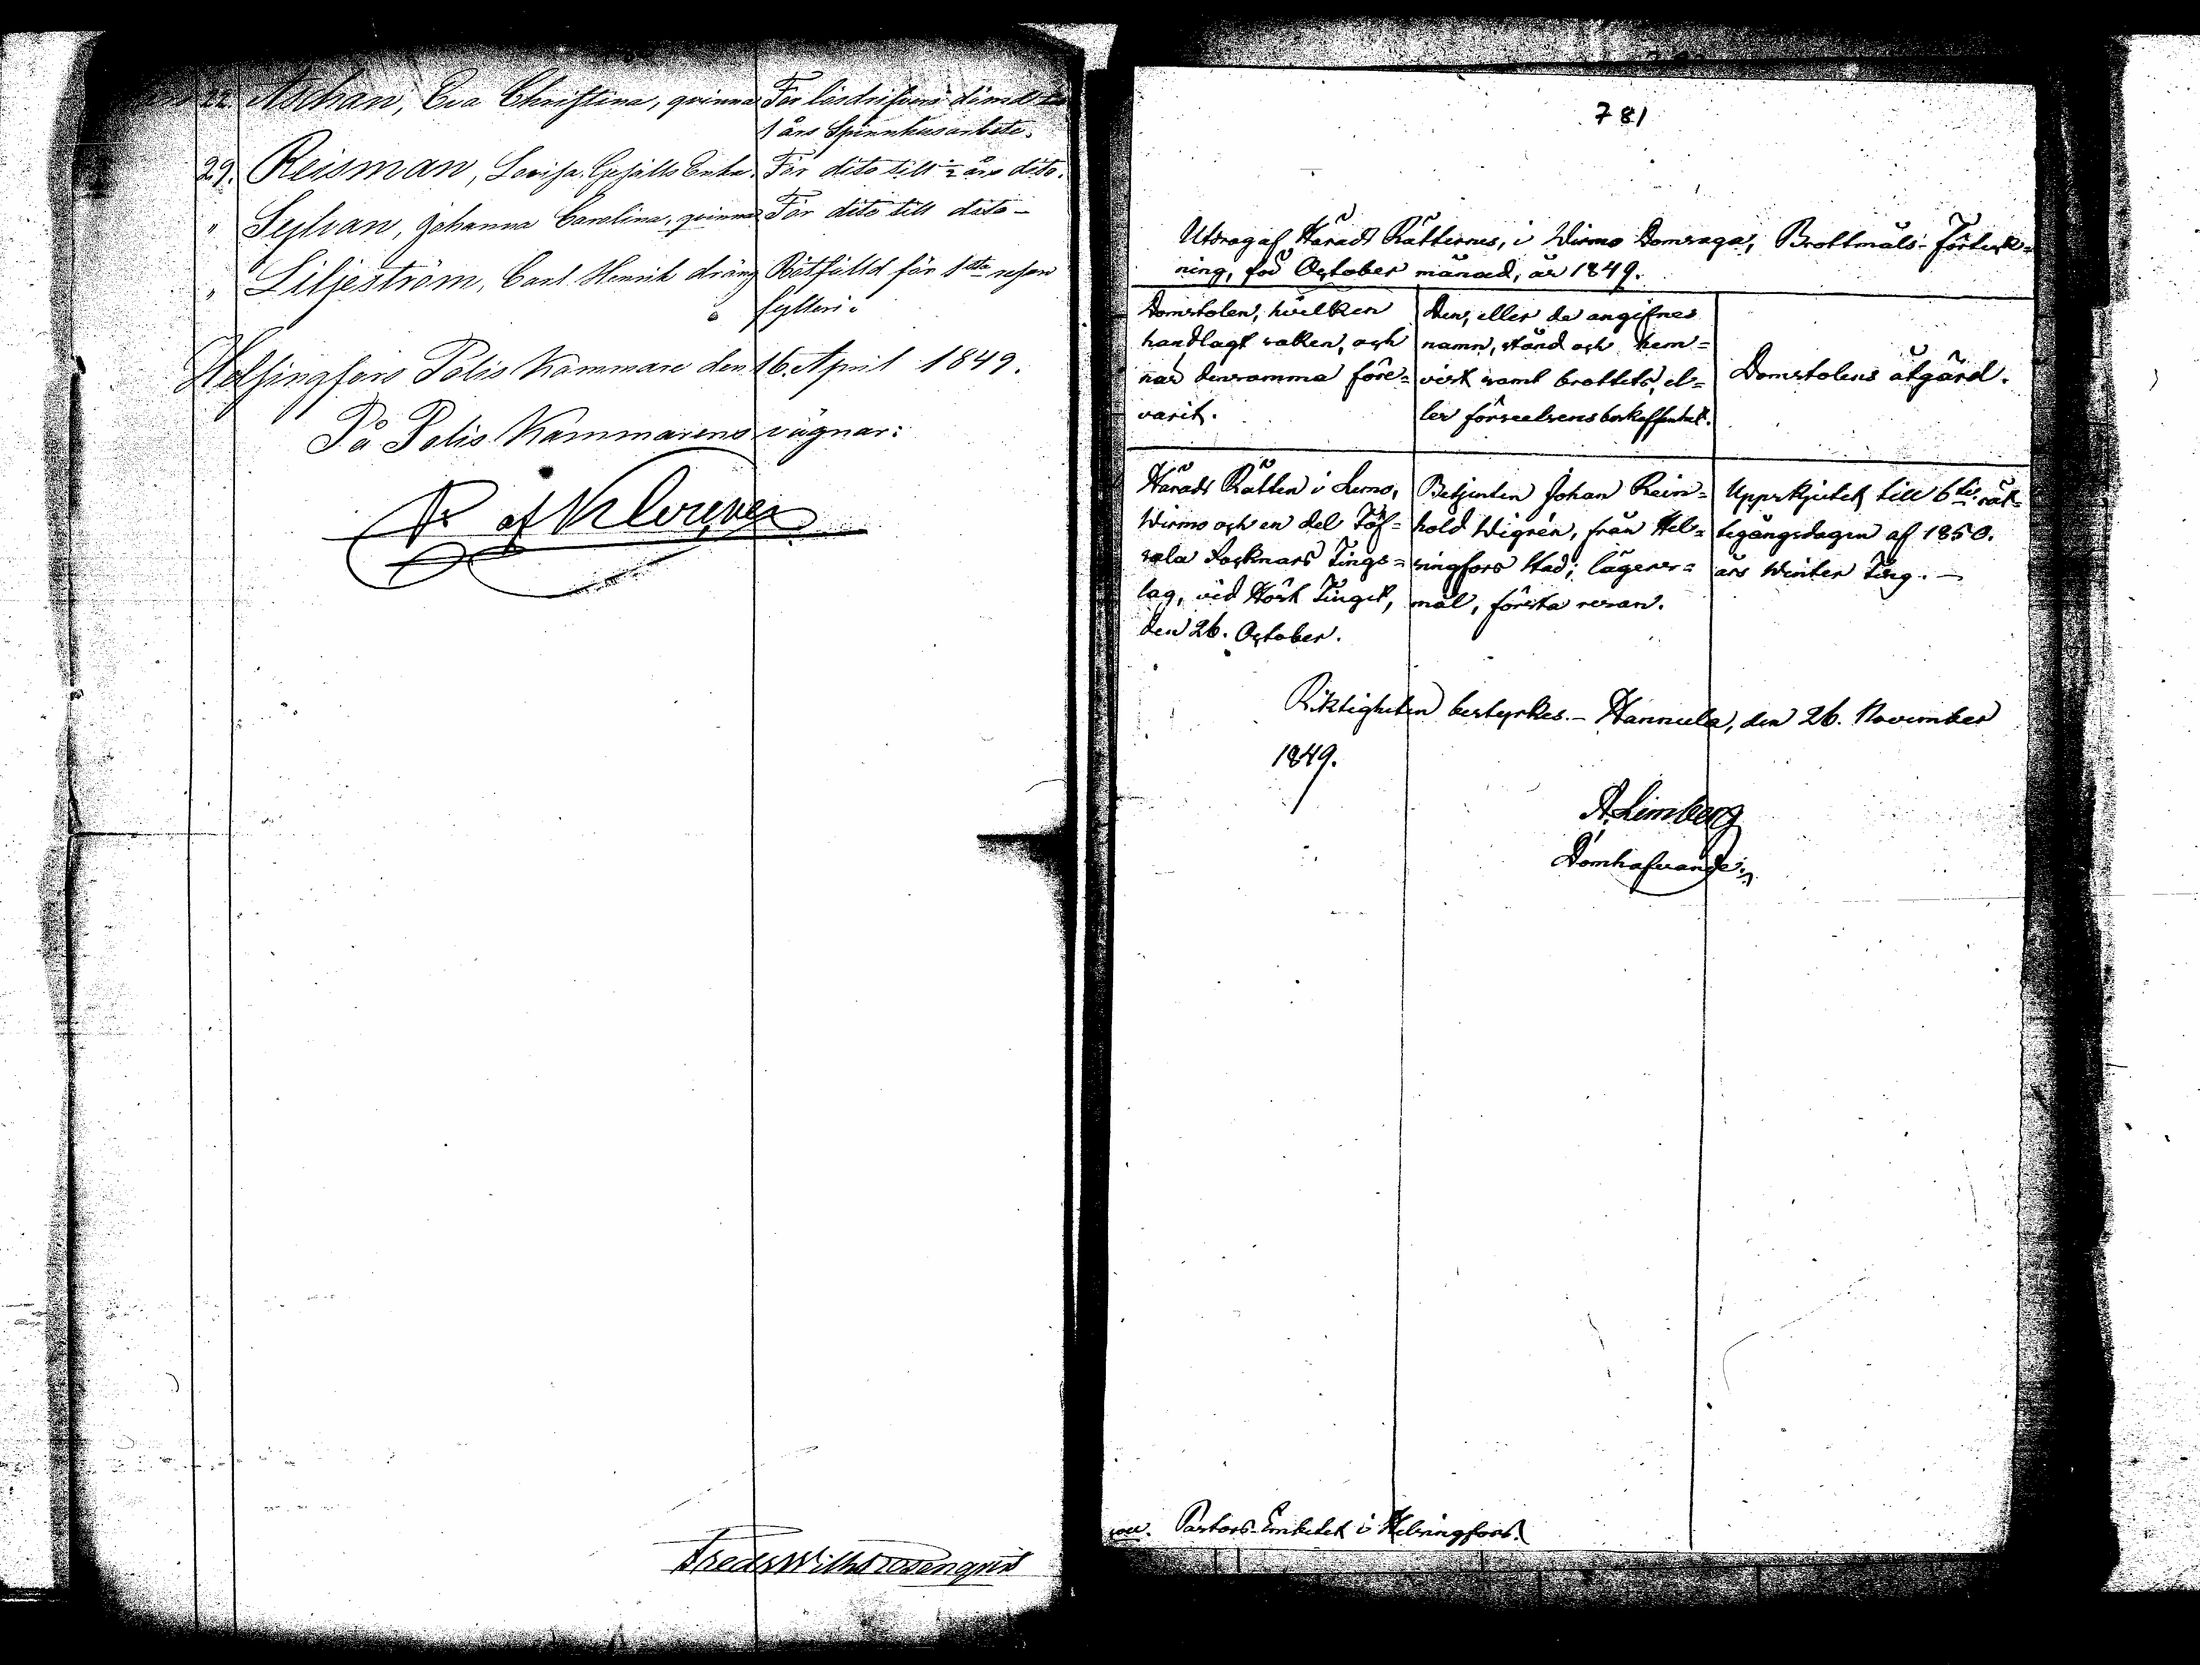 22. Aschan, Eva Christina, qvinna För lösdrifveri dömd till
1 års Spinnhusarbete.
29. Reisman, Lovisa, Gesälls Enka. För dito till ½ års dito.
" Sylvan, Johanna Carolina, qvinna För dito till dito –
" Liljeström, Carl Henrik dräng Bötfälld för 1sta resan
fylleri.
Helsingfors Polis Kammare den 16. April 1849.
På Polis Kammarens vägnar:
Fredr Wilh Rosenqvist
781
Utdrag af Härads Rätternes, i Wirmo Domsaga, Brottmåls-Förteck=
ning, för October månad, år 1849.
Domstolen, hvilken
handlagt saken, och
när densamma före=
varit.
Den, eller de angifnes
namn, stånd och hem=
vist samt brottets, el=
ler förseelsens beskaffenhet.
Domstolens åtgärd.
Härads Rätten i Lemo,
Wirmo och en del Töf=
sala Socknars Tings=
lag, vid Höst Tinget,
den 26. October.
Betjenten Johan Rein=
hold Wigrén, från Hel=
singfors Stad; lägers=
mål, första resan.
Uppskjutet till 6te rät=
tegångsdagen af 1850.
års Winter Ting. –
Riktigheten bestyrkes. – Hannula, den 26. November
1849.
A. Limberg
Domhafvande.
Pastors-Embetet i Helsingfors.